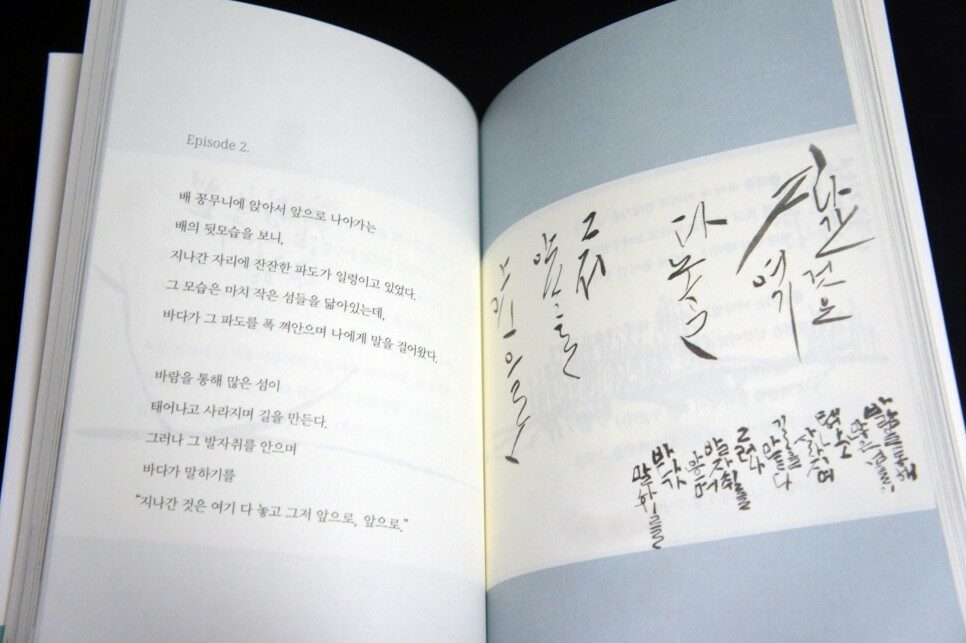 Episode 2.
배 꽁무니에 앉아서 앞으로 나아가는
배의 뒷모습을 보니,
지나간 자리에 잔잔한 파도가 일렁이고 있었다.
그 모습은 마치 작은 섬들을 닮아있는데,
바다가 그 파도를 폭 껴안으며 나에게 말을 걸어왔다.
바람을 통해 많은 섬이
태어나고 사라지며 길을 만든다.
그러나 그 발자취를 안으며
바다가 말하기를
“지나간 것은 여기 다 놓고 그저 앞으로, 앞으로.”
지나간 것은
여기
다 놓고
그저
앞으로
앞으로
바람을 통해
많은 섬이
태어나고
사라지며
길을 만든다
그러나
발자취를
안으며
바다가
말하기를